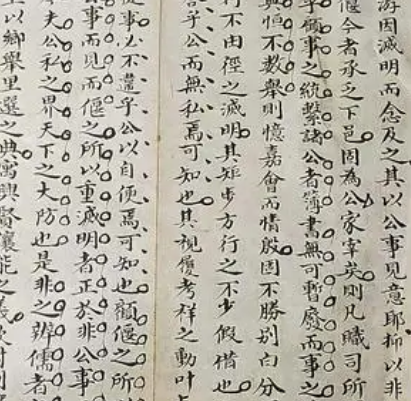 游因滅明而念及之其以公事見意耶抑以非
偃今者承乏下邑固為公家宰矣則凡職司所
領事之統繫諸公者簿書無可暫廢而事之
與恒不數舉則憶嘉會而情殷因不勝別白分
行不由徑之滅明其矩步方行之不少假借也
乎公而無私焉可知也其視履考祥之動叶
從事必不違乎公以自便焉可知也顧偃之所以
公事而見而偃之所以重滅明者正於非公事
夫公私之界天下之大防也是非之辨儒者
以鄉舉里選之典寓興賢讓能之義